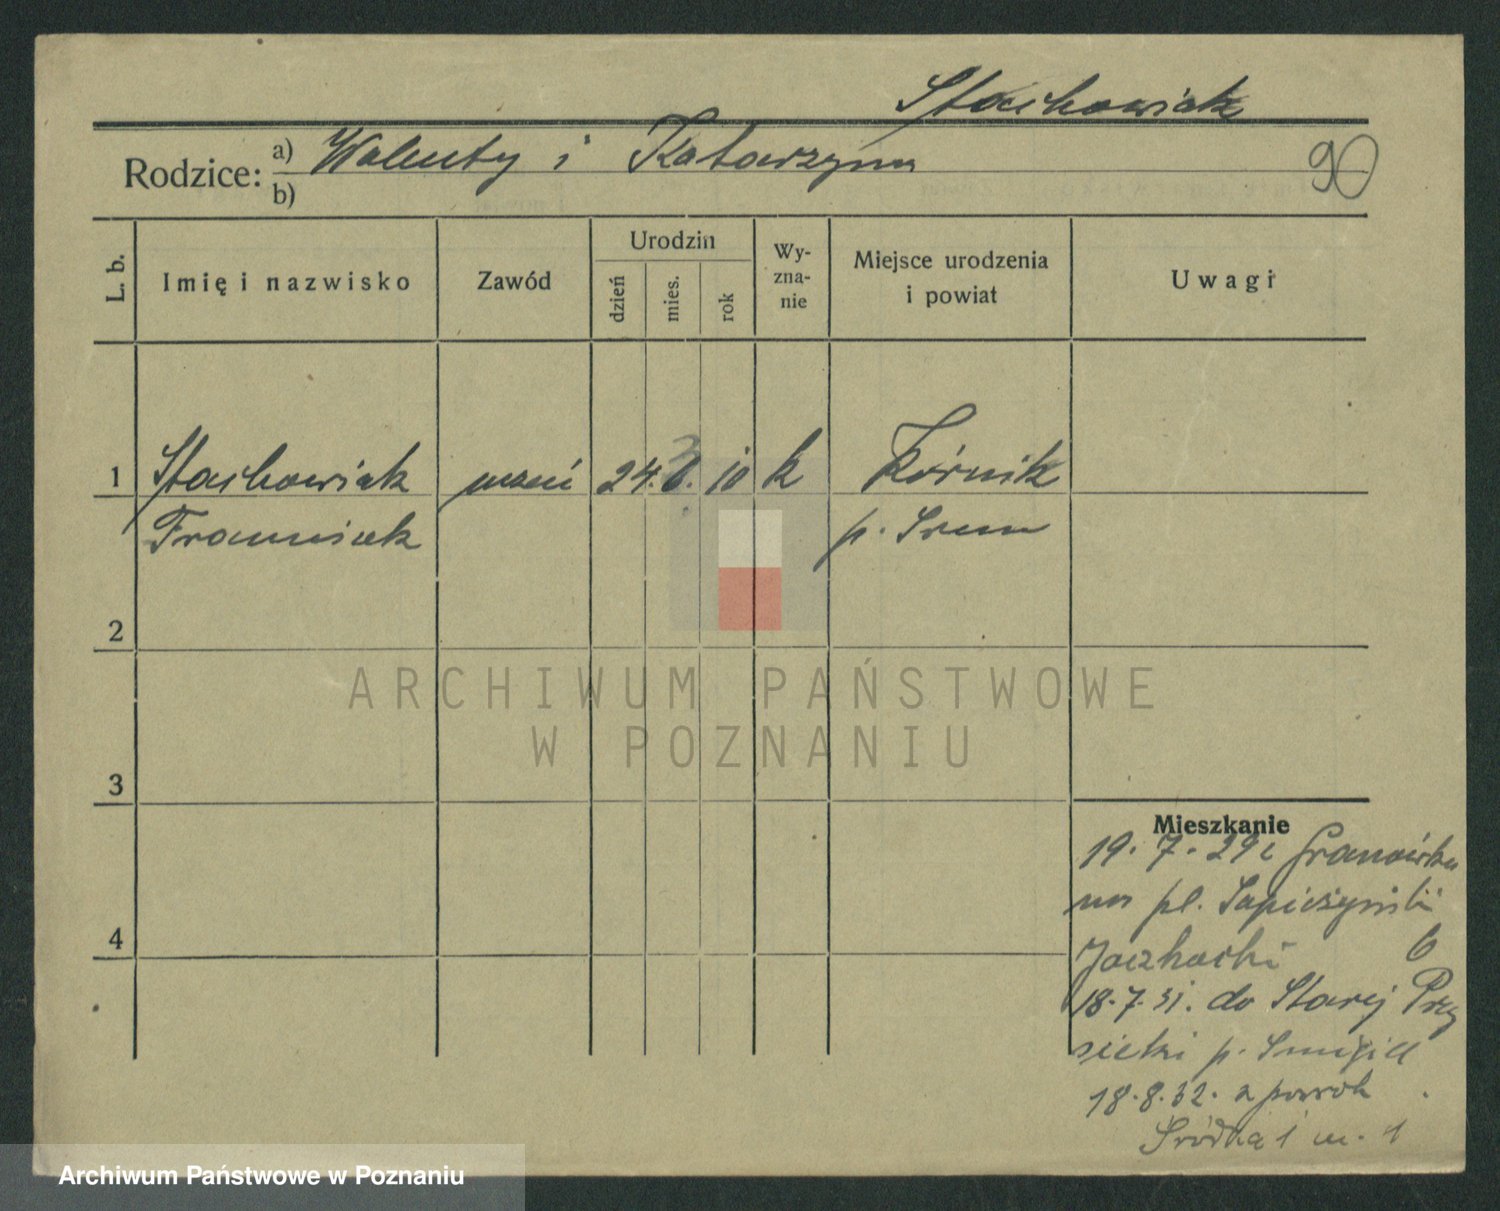 Stachowiak
Rodzice: a) Walenty i Katarzyna
b)
90
L. b. Imię i nazwisko Zawód Urodzin dzień mies. rok Wy-zna-nie Miejsce urodzenia i powiat Uwagi
1 Stachowiak uczeń 24. 10 k Kórnik
Franciszek p. Śrem
2
ARCHIWUM PAŃSTWOWE
W POZNANIU
3
Mieszkanie
19. 7. 29 z Granówka
na pl. Sapieżyński
6
4
18.7.31. do Starej Przy
sieki p. Śmigiel
18.8.32. z powrotem
Śródka 1 m. 1
Archiwum Państwowe w Poznaniu